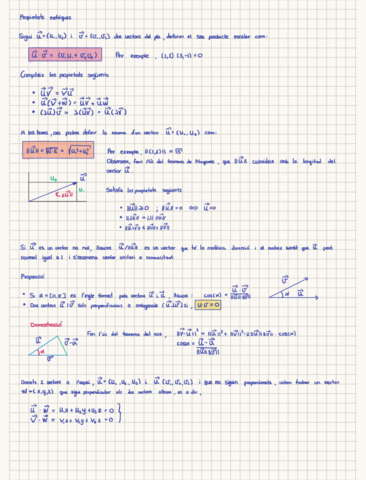 Propietats mètriques
Sigui u⃗ = (u₁, u₂) i v⃗ = (v₁, v₂) dos vectors del pla, definim el seu producte escalar com:
u⃗ · v⃗ = (u₁v₁ + u₂v₂) Per exemple, (1,3) (3,-1) = 0
Compleix les propietats següents
• u⃗v⃗ = v⃗u⃗
• u⃗(v⃗ + w⃗) = u⃗v⃗ + u⃗w⃗
• (λu⃗)v⃗ = λ(u⃗v⃗) = u⃗(λv⃗)
A les hores, ens podem definir la norma d'un vector u⃗ = (u₁, u₂) com:
‖u⃗‖ = √u⃗u⃗ = √u₁² + u₂² Per exemple,
Observem, fent l'ús del teorema de Pitàgores, que ‖u⃗‖ coincideix amb la longitud del
vector u⃗.
Satisfà les propietats següents
• ‖u⃗‖ ≥ 0 ; ‖u⃗‖ = 0 ⇔ u⃗ = 0
Si u⃗ és un vector no nul, llavors u⃗/‖u⃗‖ és un vector que té la mateixa direcció i el mateix sentit que u⃗ però
normal igual a 1 i s'anomena vector unitari o normalitzat
Proposició
• Si α = [0, π] és l'angle format pels vectors u⃗ i v⃗, llavors : cos(α) = u⃗ · v⃗ / ‖u⃗‖‖v⃗‖
• Dos vectors u⃗ i v⃗ són perpendiculars o ortogonals [u⃗ ⊥ v⃗] si, u⃗ · v⃗ = 0
u⃗ v⃗ α
Demostració
Fem l'ús del teorema del cos,
cosα =
Donats 2 vectors a l'espai, u⃗ = (u₁, u₂, u₃) i v⃗ (v₁, v₂, v₃) i que no siguin proporcionals, volem trobar un vector
w⃗ = (x, y, z) que sigui perpendicular als dos vectors alhora, és a dir,
u⃗ · w⃗ = u₁x + u₂y + u₃z = 0
v⃗ · w⃗ = v₁x + v₂y + v₃z = 0